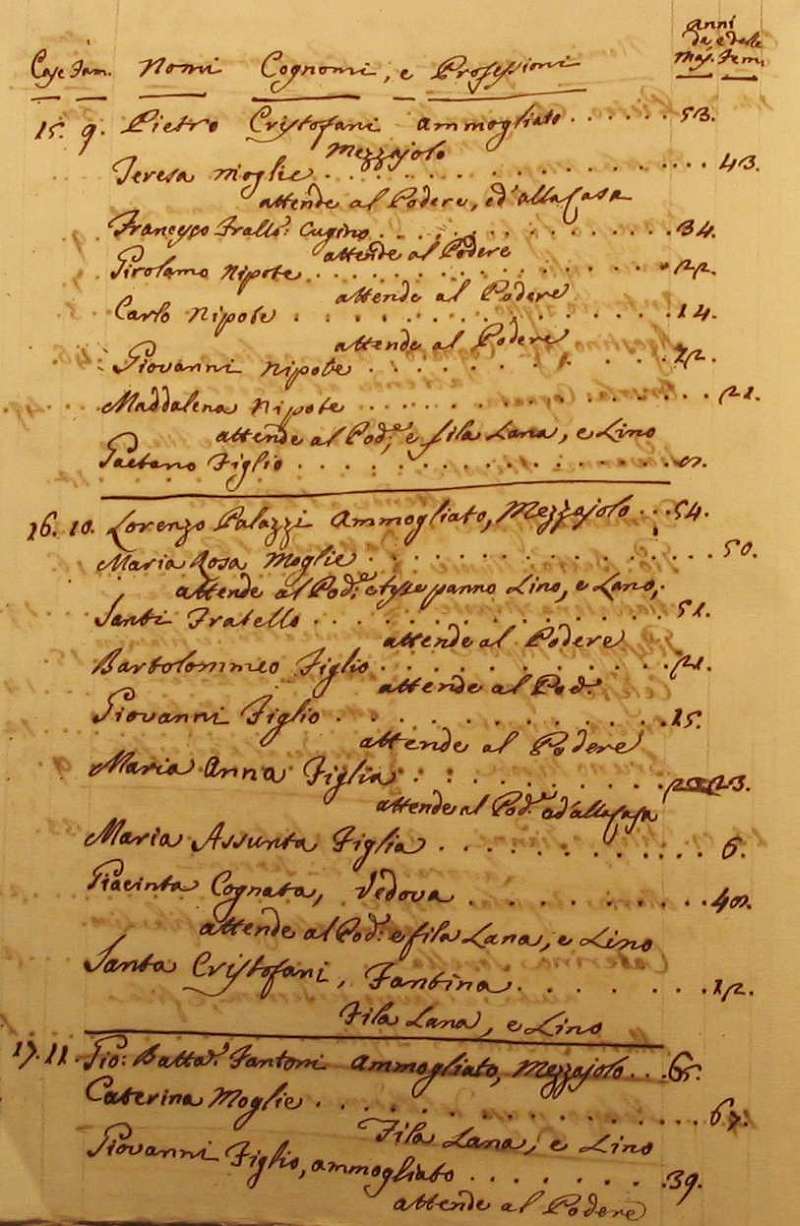 anni
da e dalle
Case Fam. Nomi Cognomi, e Professioni Mas. Fem.
15. 9. Pietro Cristofani Ammogliato . . . . . . 53.
Mezzajolo
Teresa Moglie . . . . . . . . . . . . . . . . 43.
attende al Podere, ed' alla Casa
Francesco Frallo: Cugino . . . . . . . . . . . . 34.
attende al Podere
Girolamo Nipote . . . . . . . . . . . . . . . 22.
attende al Podere
Carlo Nipote . . . . . . . . . . . . . . . 14.
attende al Podere
Giovanni Nipote . . . . . . . . . . . 12.
Maddalena Nipote . . . . . . . . . . . . . . 21.
attende al Pod.e, e fila Lana, e Lino
Gaetano Figlio . . . . . . . . . . . . . . .
16. 10. Lorenzo Palazzi Ammogliato, Mezzajolo . . . 54.
Maria Rosa Moglie . . . . . . . . . . . . . . 50.
attende al Pod.e e tesse panno Lino, e Lano,
Santi Fratello . . . . . . . . . . . . . . . 51.
attende al Podere
Bartolommeo Figlio . . . . . . . . . . . . 21.
attende al Pod.e
Giovanni Figlio . . . . . . . . . . . . . 15.
attende al Podere
Maria Anna Figlia . . . . . . . . . . . 23.
attende al Pod.e ed' alla Casa
Maria Assunta Figlia . . . . . . . . . . . . 6.
Giacinta Cognata, Vedova . . . . . . . . . . 40.
attende al Pod.e e fila Lana, e Lino
Santa Cristofani, Fantina . . . . . . . 12.
Fila Lana, e Lino
17. 11. Gio: Batta: Fantoni Ammogliato, Mezzajolo . . . 65.
Caterina Moglie . . . . . . . . . . . . . . . 67.
Fila Lana, e Lino
Giovanni Figlio, ammogliato . . . . . . . . 39.
attende al Podere